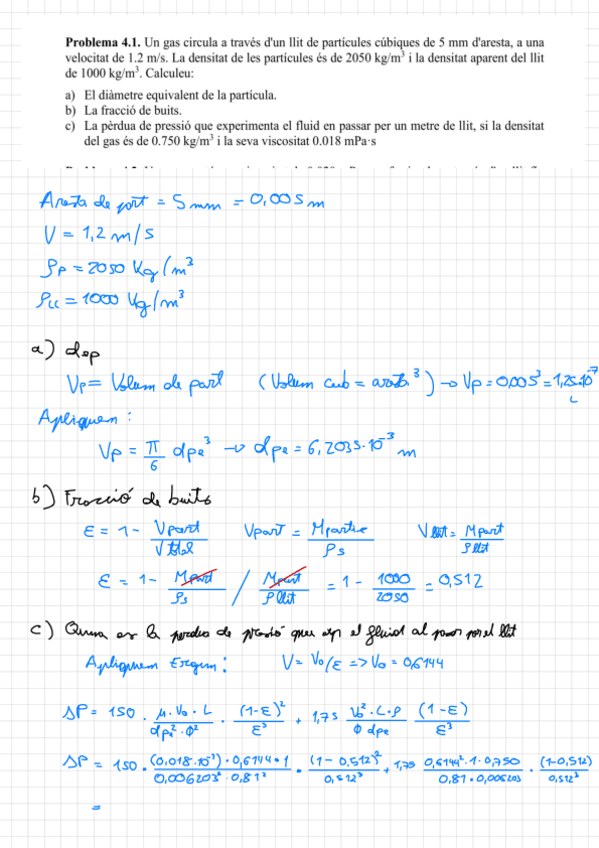 Problema 4.1. Un gas circula a través d'un llit de partícules cúbiques de 5 mm d'aresta, a una
velocitat de 1.2 m/s. La densitat de les partícules és de 2050 kg/m³ i la densitat aparent del llit
de 1000 kg/m³. Calculeu:
a) El diàmetre equivalent de la partícula.
b) La fracció de buits.
c) La pèrdua de pressió que experimenta el fluid en passar per un metre de llit, si la densitat
del gas és de 0.750 kg/m³ i la seva viscositat 0.018 mPa·s
Aresta de part = 5 mm = 0,005 m
V = 1,2 m/s
ρp = 2050 Kg/m³
ρLL = 1000 Kg/m³
a) dep
Vp = Volum de part (Volum cub = aresta³) → Vp = 0,005³ = 1,25·10⁻⁷
Apliquem:
Vp = π/6 dpe³ → dpe = 6,2035·10⁻³ m
b) Fracció de buits
ε = 1 - Vpart/Vtotal Vpart = Mpartic/ρs Vllit = Mpart/ρllit
ε = 1 - Mpart/ρs / Mpart/ρllit = 1 - 1000/2050 = 0,512
c) Quina es la perdua de pressió que exp el fluid al passar per el llit
Apliquem Ergun: V = Vo/ε => Vo = 0,6144
ΔP = 150 · μ·Vo·L/dpe²·Φ² · (1-ε)²/ε³ + 1,75 Vo²·L·ρ/Φ dpe (1-ε)/ε³
ΔP = 150 · (0.018·10⁻³)·0,6144·1/0,006203²·0,81² · (1-0,512)²/0,512³ + 1,75 0,6144²·1·0,750/0,81·0,006203 · (1-0,512)/0,512³
=